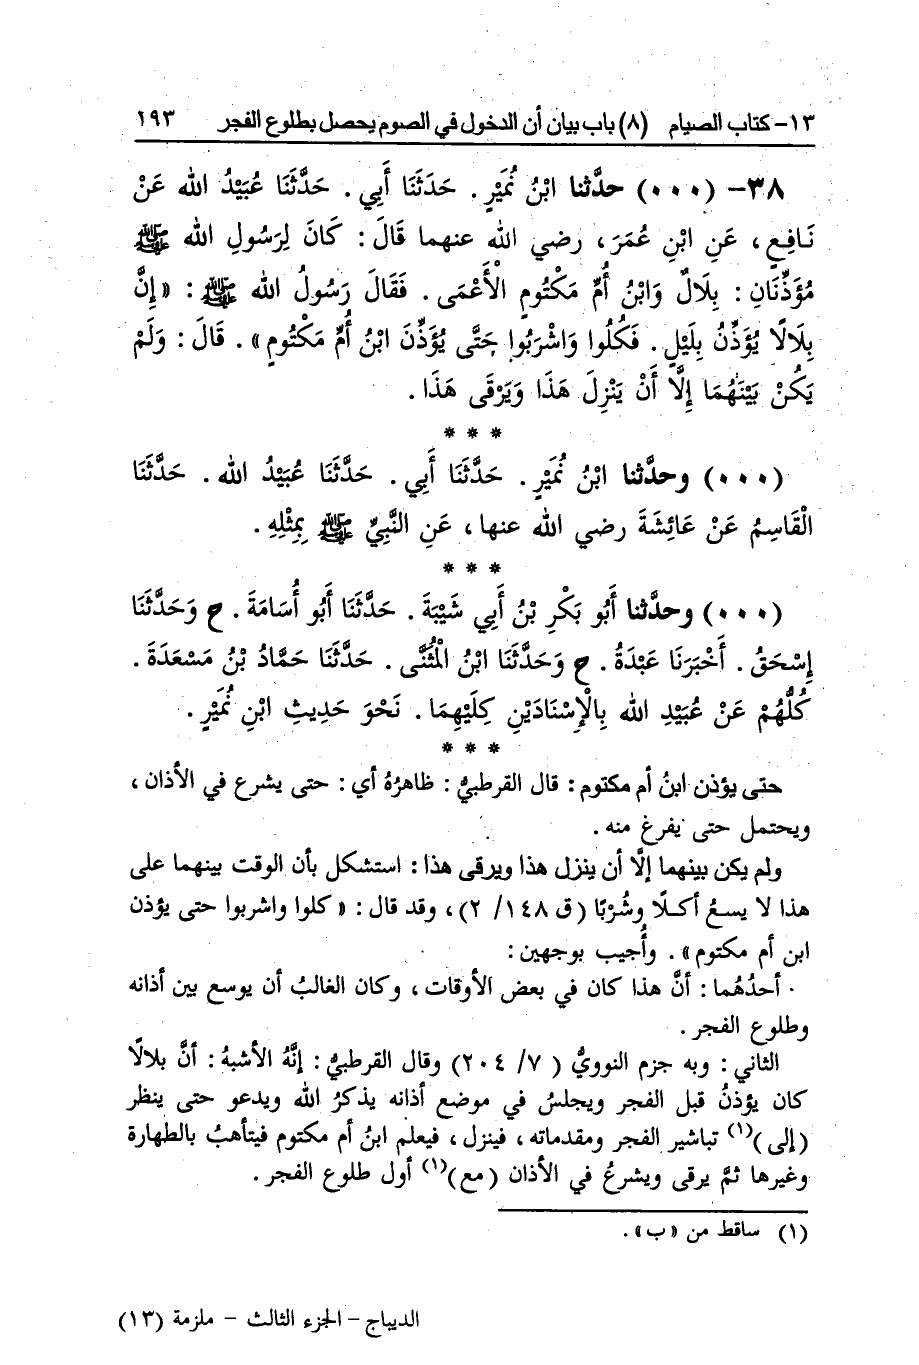 ١٣- كتاب الصيام (٨) باب بيان أن الدخول في الصوم يحصل بطلوع الفجر ١٩٣
٣٨- (٠٠٠) حدَّثنا ابْنُ نُمَيْرٍ. حَدَثَنَا أَبِي. حَدَّثَنَا عُبَيْدُ الله عَنْ
نَافِعٍ، عَنِ ابْنِ عُمَرَ، رضي الله عنهما قَالَ: كَانَ لِرَسُولِ الله ﷺ
مُؤَذِّنَانِ: بِلَالٌ وَابْنُ أُمِّ مَكْتُومٍ الْأَعْمَى. فَقَالَ رَسُولُ الله ﷺ: «إِنَّ
بِلَالًا يُؤَذِّنُ بِلَيْلٍ. فَكُلُوا وَاشْرَبُوا حَتَّى يُؤَذِّنَ ابْنُ أُمِّ مَكْتُومٍ». قَالَ: وَلَمْ
يَكُنْ بَيْنَهُمَا إِلَّا أَنْ يَنْزِلَ هَذَا وَيَرْقَى هَذَا.
* * *
(٠٠٠) وحدَّثنا ابْنُ نُمَيْرٍ. حَدَّثَنَا أَبِي. حَدَّثَنَا عُبَيْدُ الله. حَدَّثَنَا
الْقَاسِمُ عَنْ عَائِشَةَ رضي الله عنها، عَنِ النَّبِيِّ ﷺ بِمِثْلِهِ.
* * *
(٠٠٠) وحدَّثنا أَبُو بَكْرِ بْنُ أَبِي شَيْبَةَ. حَدَّثَنَا أَبُو أُسَامَةَ. ح وَحَدَّثَنَا
إِسْحَقُ. أَخْبَرَنَا عَبْدَةُ. ح وَحَدَّثَنَا ابْنُ الْمُثَنَّى. حَدَّثَنَا حَمَّادُ بْنُ مَسْعَدَةَ.
كُلُّهُمْ عَنْ عُبَيْدِ الله بِالْإِسْنَادَيْنِ كِلَيْهِمَا. نَحْوَ حَدِيثِ ابْنِ نُمَيْرٍ.
* * *
حتى يؤذن ابنُ أم مكتوم: قال القرطبيُّ: ظاهرُهُ أي: حتى يشرع في الأذان،
ويحتمل حتى يفرغ منه.
ولم يكن بينهما إلَّا أن ينزل هذا ويرقى هذا: استشكل بأن الوقت بينهما على
هذا لا يسعُ أكلًا وشُرْبًا (ق ١٤٨/ ٢)، وقد قال: «كلوا واشربوا حتى يؤذن
ابن أم مكتوم». وأُجيب بوجهين:
أحدُهُما: أنَّ هذا كان في بعض الأوقات، وكان الغالبُ أن يوسع بين أذانه
وطلوع الفجر.
الثاني: وبه جزم النوويُّ (٧/ ٢٠٤) وقال القرطبيُّ: إنَّهُ الأشبهُ: أنَّ بلالًا
كان يؤذنُ قبل الفجر ويجلسُ في موضع أذانه يذكرُ الله ويدعو حتى ينظر
(إلى)(١) تباشير الفجر ومقدماته، فينزل، فيعلم ابنُ أم مكتوم فيتأهبُ بالطهارة
وغيرها ثمَّ يرقى ويشرعُ في الأذان (مع)(١) أول طلوع الفجر.
(١) ساقط من «ب».
الديباج - الجزء الثالث - ملزمة (١٣)